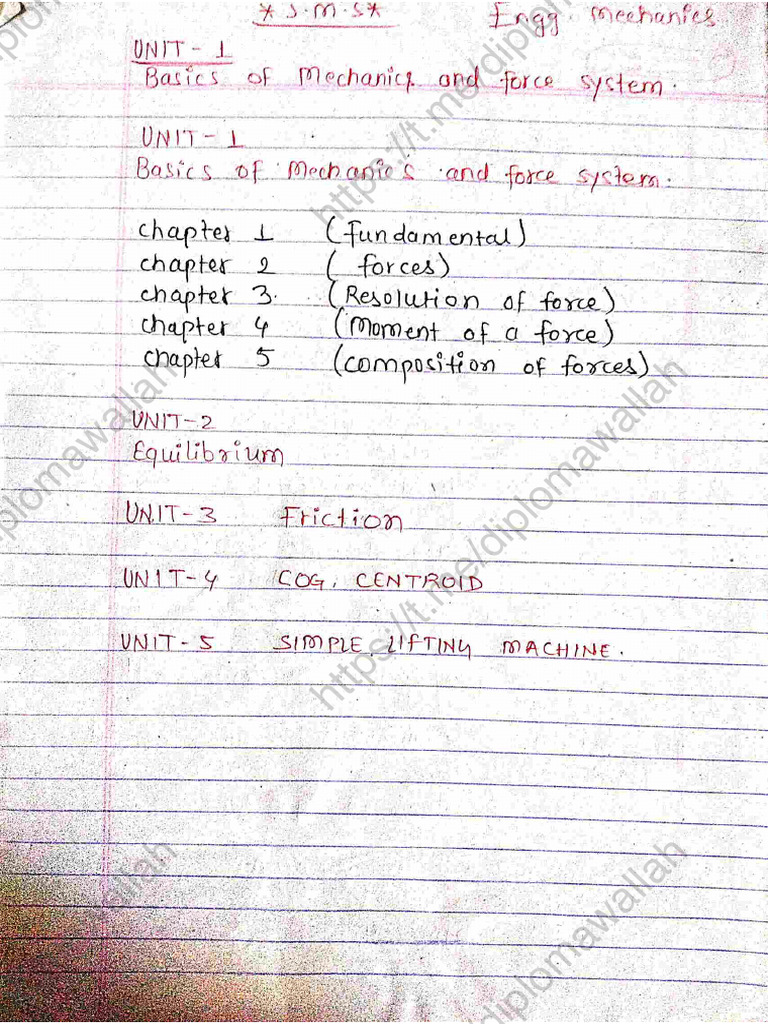 * S.M.S * Engg. Mechanics
UNIT - 1
Basics of Mechanics and force system.
UNIT - 1
Basics of Mechanics and force system.
chapter 1 (fundamental)
chapter 2 ( forces)
chapter 3. (Resolution of force)
chapter 4 (Moment of a force)
chapter 5 (composition of forces)
UNIT-2
Equilibrium
UNIT-3 Friction
UNIT-4 COG, CENTROID
UNIT-5 SIMPLE LIFTING MACHINE.
https://t.me/diplomawallah
https://t.me/diplomawallah